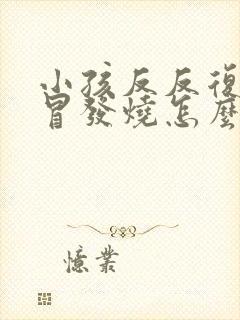 小孩反反復
冒發燒怎麼
憶業